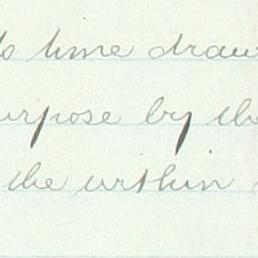 to time draw
urpose by the
the within